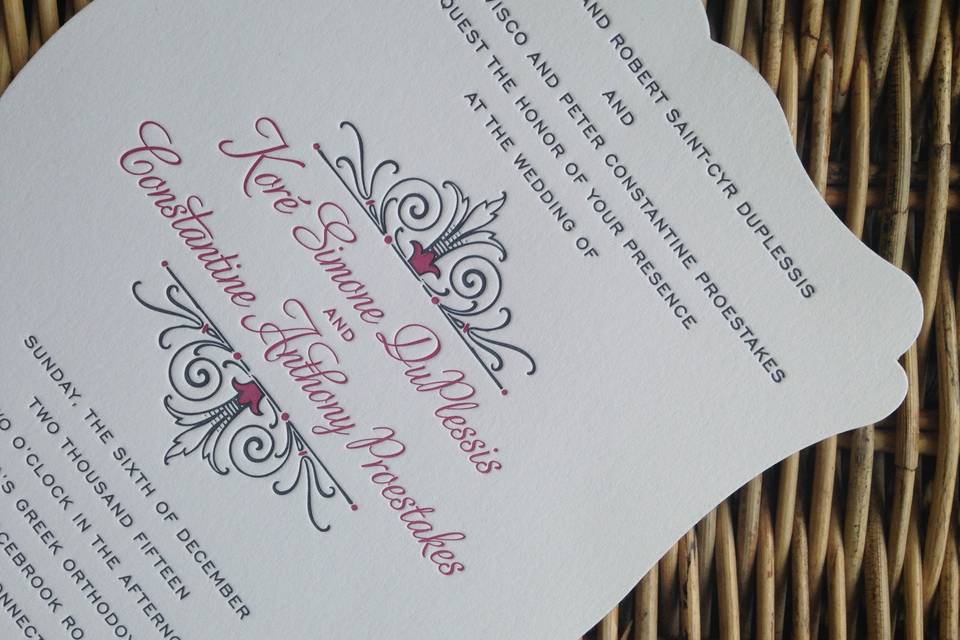 AND ROBERT SAINT-CYR DUPLESSIS
AND
AND PETER CONSTANTINE PROESTAKES
THE HONOR OF YOUR PRESENCE
AT THE WEDDING OF
Koré Simone DuPlessis
AND
Constantine Anthony Proestakes
SUNDAY, THE SIXTH OF DECEMBER
TWO THOUSAND FIFTEEN
O'CLOCK IN THE
GREEK